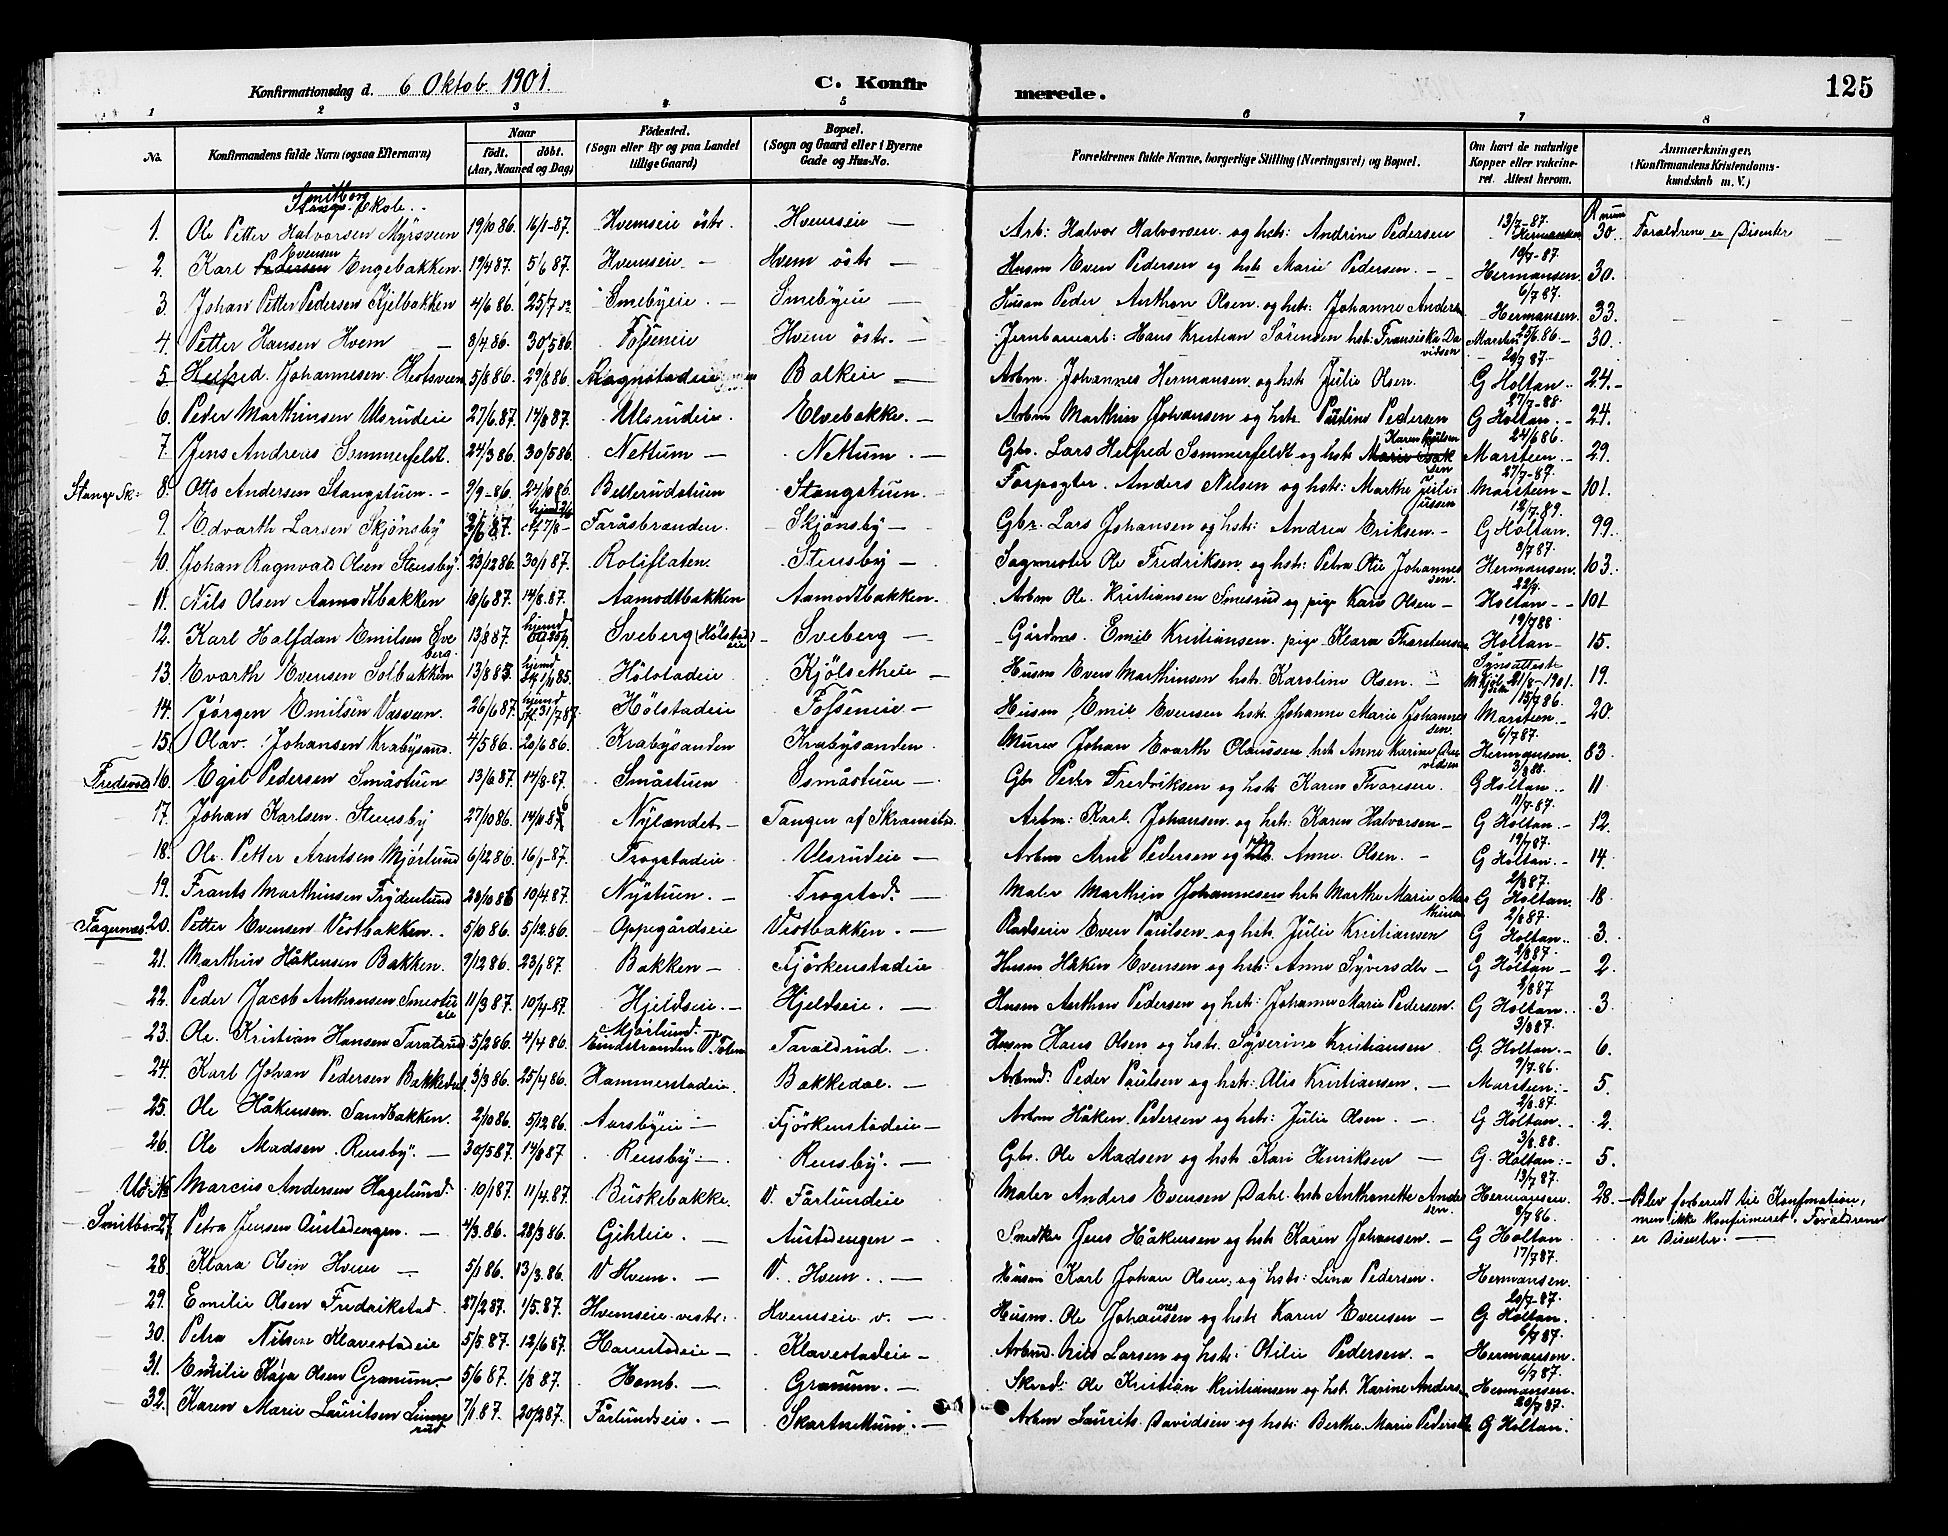 Konfirmationsdag d. 6 Oktob. 1901. C. Konfir merede. 125
1 2 3 4 5 6 7 8
No. Konfirmandens fulde Navn (ogsaa Efternavn) Naar födt. döbt. (Aar, Maaned og Dag) Födested. (Sogn eller By og paa Landet tillige Gaard) Bopæl. (Sogn og Gaard eller i Byerne Gade og Hus-No. Forældrenes fulde Navne, borgerlige Stilling (Næringsvei) og Bopæl. Om havt de naturlige Kopper eller vakcineret. Attest herom. Anmærkninger, (Konfirmandens Kristendomskundskab m. V.)
Smitbor
Stange Skole
1. Ole Petter Halvorsen Myrsveen 19/10 86. 16/1-87. Hvemseie östr. Hvemseie — Arb: Halvor Halvorsen og hstr: Andrine Pedersen 13/7-87. Hermansen 30. Foraldrene er Disenter
2. Karl Pedersen Evensen Engebakken. 19/4 87. 5/6 87. Hvemseie. — Hvem östr — Husm Even Pedersen og hstr Marie Pedersen. — 19/7-87. Hermansen 30.
3. Johan Petter Pedersen Kjelbakken 4/6 86. 25/7 Smebyeie. — Smebyeie — Husm Peder Anthon Olsen og hstr: Johanne Anders 6/7 87. Hermansen. 33.
4. Petter Hansen Hvem — 8/4 86. 30/5 86. Fosseneie Hvem östr. — Jernbanearb: Hans Kristian Sörensen hstr: Fransiska Davidsen 25/6 86. 30.
5. Helfred. Johannesen. 5/8 86. 29/8 86. Balkeie — Arbm. Johannes Hermansen og hstr Julie Olsen. 20/7 87- G Holtan.. 24.
6. Peder Marthinsen Ulsrudeie 27/6 87. 14/8 87. Ulsrudeie. Elvebakke. — Arbm Marthin Johansen og hstr Pauline Pedersen 27/7-88. G Holtan. 24.
7. Jens Andreas Sommerfeldt. 24/3 86. 30/5 86. Nettum — Nettum. — Gbr. Lars Helfred Sommerfeldt og hstr Karen Paulsen 24/6 86. Marsteen. 29.
Stange Sk. 8. Otto Andersen Stangstuen. — 9/9-86. 24/10 86. Bellerudstuen Stangstuen. — Forpagter. Anders Nilsen og hstr: Marthe Juliussen 27/7-87. Marsteen 101.
9. Edvarth Larsen Skjönsby Faråsbranden. Skjönsby — Gbr. Lars Johansen og hstr: Andrea Eriksen. — 12/7-89. G Holtan. 99.
10. Johan Ragnvald Olsen Stensby. 23/12 86. 30/1 87. Roliflaten. Stensby — Sagmester Ole Fredriksen og hstr: Petra Olie Johannessen. 9/7 87. Hermansen. 103.
11. Nils Olsen Aamodtbakken 10/6 87. 14/8. 87. Aamodtbakken Aamodtbakken. Arbm Ole Kristiansen Smesrud og pige Kari Olsen — 22/7. Holtan 101
12. Karl Halfdan Emilsen Sveberg. 13/8 87. Sveberg (Hölstadeie) Sveberg — Gårdms. Emil Kristiansen. pige Klara Thorstensen 19/7 88 Holtan 15.
13. Evarth Evensen Solbakken 13/8 85. hjemd Hölstadeie. Kjölsetheie — Husm Even Marthinsen hstr Karoline Olsen. — Synsattest 21/8-1901. 19.
14. Jörgen Emilsen Väsveen. 26/6 87. hjemd 31/7 87. Hölstadeie Fosseneie — Husm Emil Evensen hstr. Johanne Marie Johannessen. 15/7 86. Marsteen 20.
15. Olav. Johansen Krabysand. 4/5 86. 20/6 86. Krabysanden Krabysanden. Murer Johan Evarth Claussen hstr Anne Karine Davidsen 6/7 87. Hermansen. 83.
Fredsvol 16. Egil Pedersen Småstuen 13/6 87. 14/8-87. Småstuen Småstuen — Gbr Peder Fredriksen og hstr Karen Thoresen. 3/8 88. G Holtan.. 11
17. Johan Karlsen. Stensby 27/10 86. Nylandet — Tangen af Skramstad. Arbm: Karl Johansen og hstr: Karen Halvorsen — 11/7-87. G Holtan. 12.
18. Ole Petter Arntsen Mjörlund 6/12 86. 16/1-87. Trogstadeie. Ulsrudeie — Arbm Arnt Pedersen og Anne Olsen. — 19/7 87. G Holtan. 14.
19. Frants Marthinsen Frydenlund 20/10 86 10/4 87. Nystuen. — Trogstad. — Maler Marthin Johannesen hstr Marthe Marie Mathisen 2/8 87. G Holtan. 18.
Fagernæs 20. Petter Evensen Vestbakken. 5/10 86. 5/12 86. Oppegårdseie Vestbakken. — Pladseier Even Paulsen og hstr. Julie Kristiansen 2/8 87. G Holtan.. 3.
21. Marthin Håkensen Bakken. 9/12 86. 23/1 87. Bakken — Fjörkenstadeie Husm Håken Evensen og hstr: Anne Syversdtr — 2/8 87. G Holtan — 2.
22. Peder Jacob Anthonsen Smestueie 11/3 87. 10/4-87. Hjeldseie. — Hjeldseie. — Husm Anthon Pedersen og hstr: Johanne Marie Pedersen. 2/8 87 G Holtan. 3.
23. Ole. Kristian Hansen Taralrud 5/2 86. 4/4 86. Mjörlund. — Eindstranden V. Toten Taraldrud. — Husm Hans Olsen og hstr. Syverine Kristiansen 3/8 87. G. Holtan. 6.
24. Karl Johan Pedersen Bakkedal 3/3 86. 25/4 86. Hammerstadeie. Bakkedal. — Arbmd: Peder Paulsen og hstr: Olis Kristiansen. — 9/7-86. Marsteen. 5.
25. Ole Håkensen Sandbakken. 2/10 86. 5/12 86. Aarsbyeie — Fjörkenstadeie — Arbm Håken Pedersen og hstr: Julie Olsen — 2/8. 87. G Holtan. 2.
26. Ole Madsen Rensby. — 30/5 87. 14/8 87 Rensby. — Rensby. — Gbr. Ole Madsen og hstr. Kari Henriksen — 3/8. 88. G. Holtan. 5.
Ud. No Marcus Andersen Hagelund. 10/1 87. 11/4. 87. Buskebakke. V. Fårlundeie Maler Anders Evensen Dahl. hstr Anthonette Andersen. 13/7 87. Hermansen. 28. Blev forberedt til Konfmation,
men ikke konfirmeret. Foraldrene
er Disenter. —
Smitbor 27. Petra Jensen Austadengen. — 4/3. 86. 28/3 86. Gihleie. — Austadengen — Snedker Jens Håkensen og hstr Karen Johansen. — 8/7 86. G Holtan
28. Klara Olsen Hvem — 5/1 86. 13/3. 86. V Hvem. — V. Hvem.. — Husm Karl Johan Olsen. og hstr: Lina Pedersen. 17/7 87. Hermansen.
29. Emilie Olsen Fredrikstad. 27/2 87. 1/5. 87. Hvemseie vestr: Hvemseie v. — Husm. Ole Johannesen og hstr Karen Evensen — 20/7-87. G Holtan.
30. Petra Nilsen Klavestadeie 5/5. 87. 12/6 87. Hanestadeie — Klavestadeie — Arbmd. Nils Larsen og hstr: Otilie Pedersen. — 6/7 87. Hermansen.
31. Emilie Kaja Olsen Granum. 5/6 87. 1/8 87. Homb. — Granum. — Skrad: Ole Kristian Kristiansen og hst. Karine Anders 6/7 87. Hermansen.
32. Karen Marie Lauritsen Linnerud 7/1 87. 20/2 87. Fårlundseie. — Skartnettum. — Arbm Laurits. Davidsen og hstr: Berthe Marie Peders 20/7 87. G Holtan